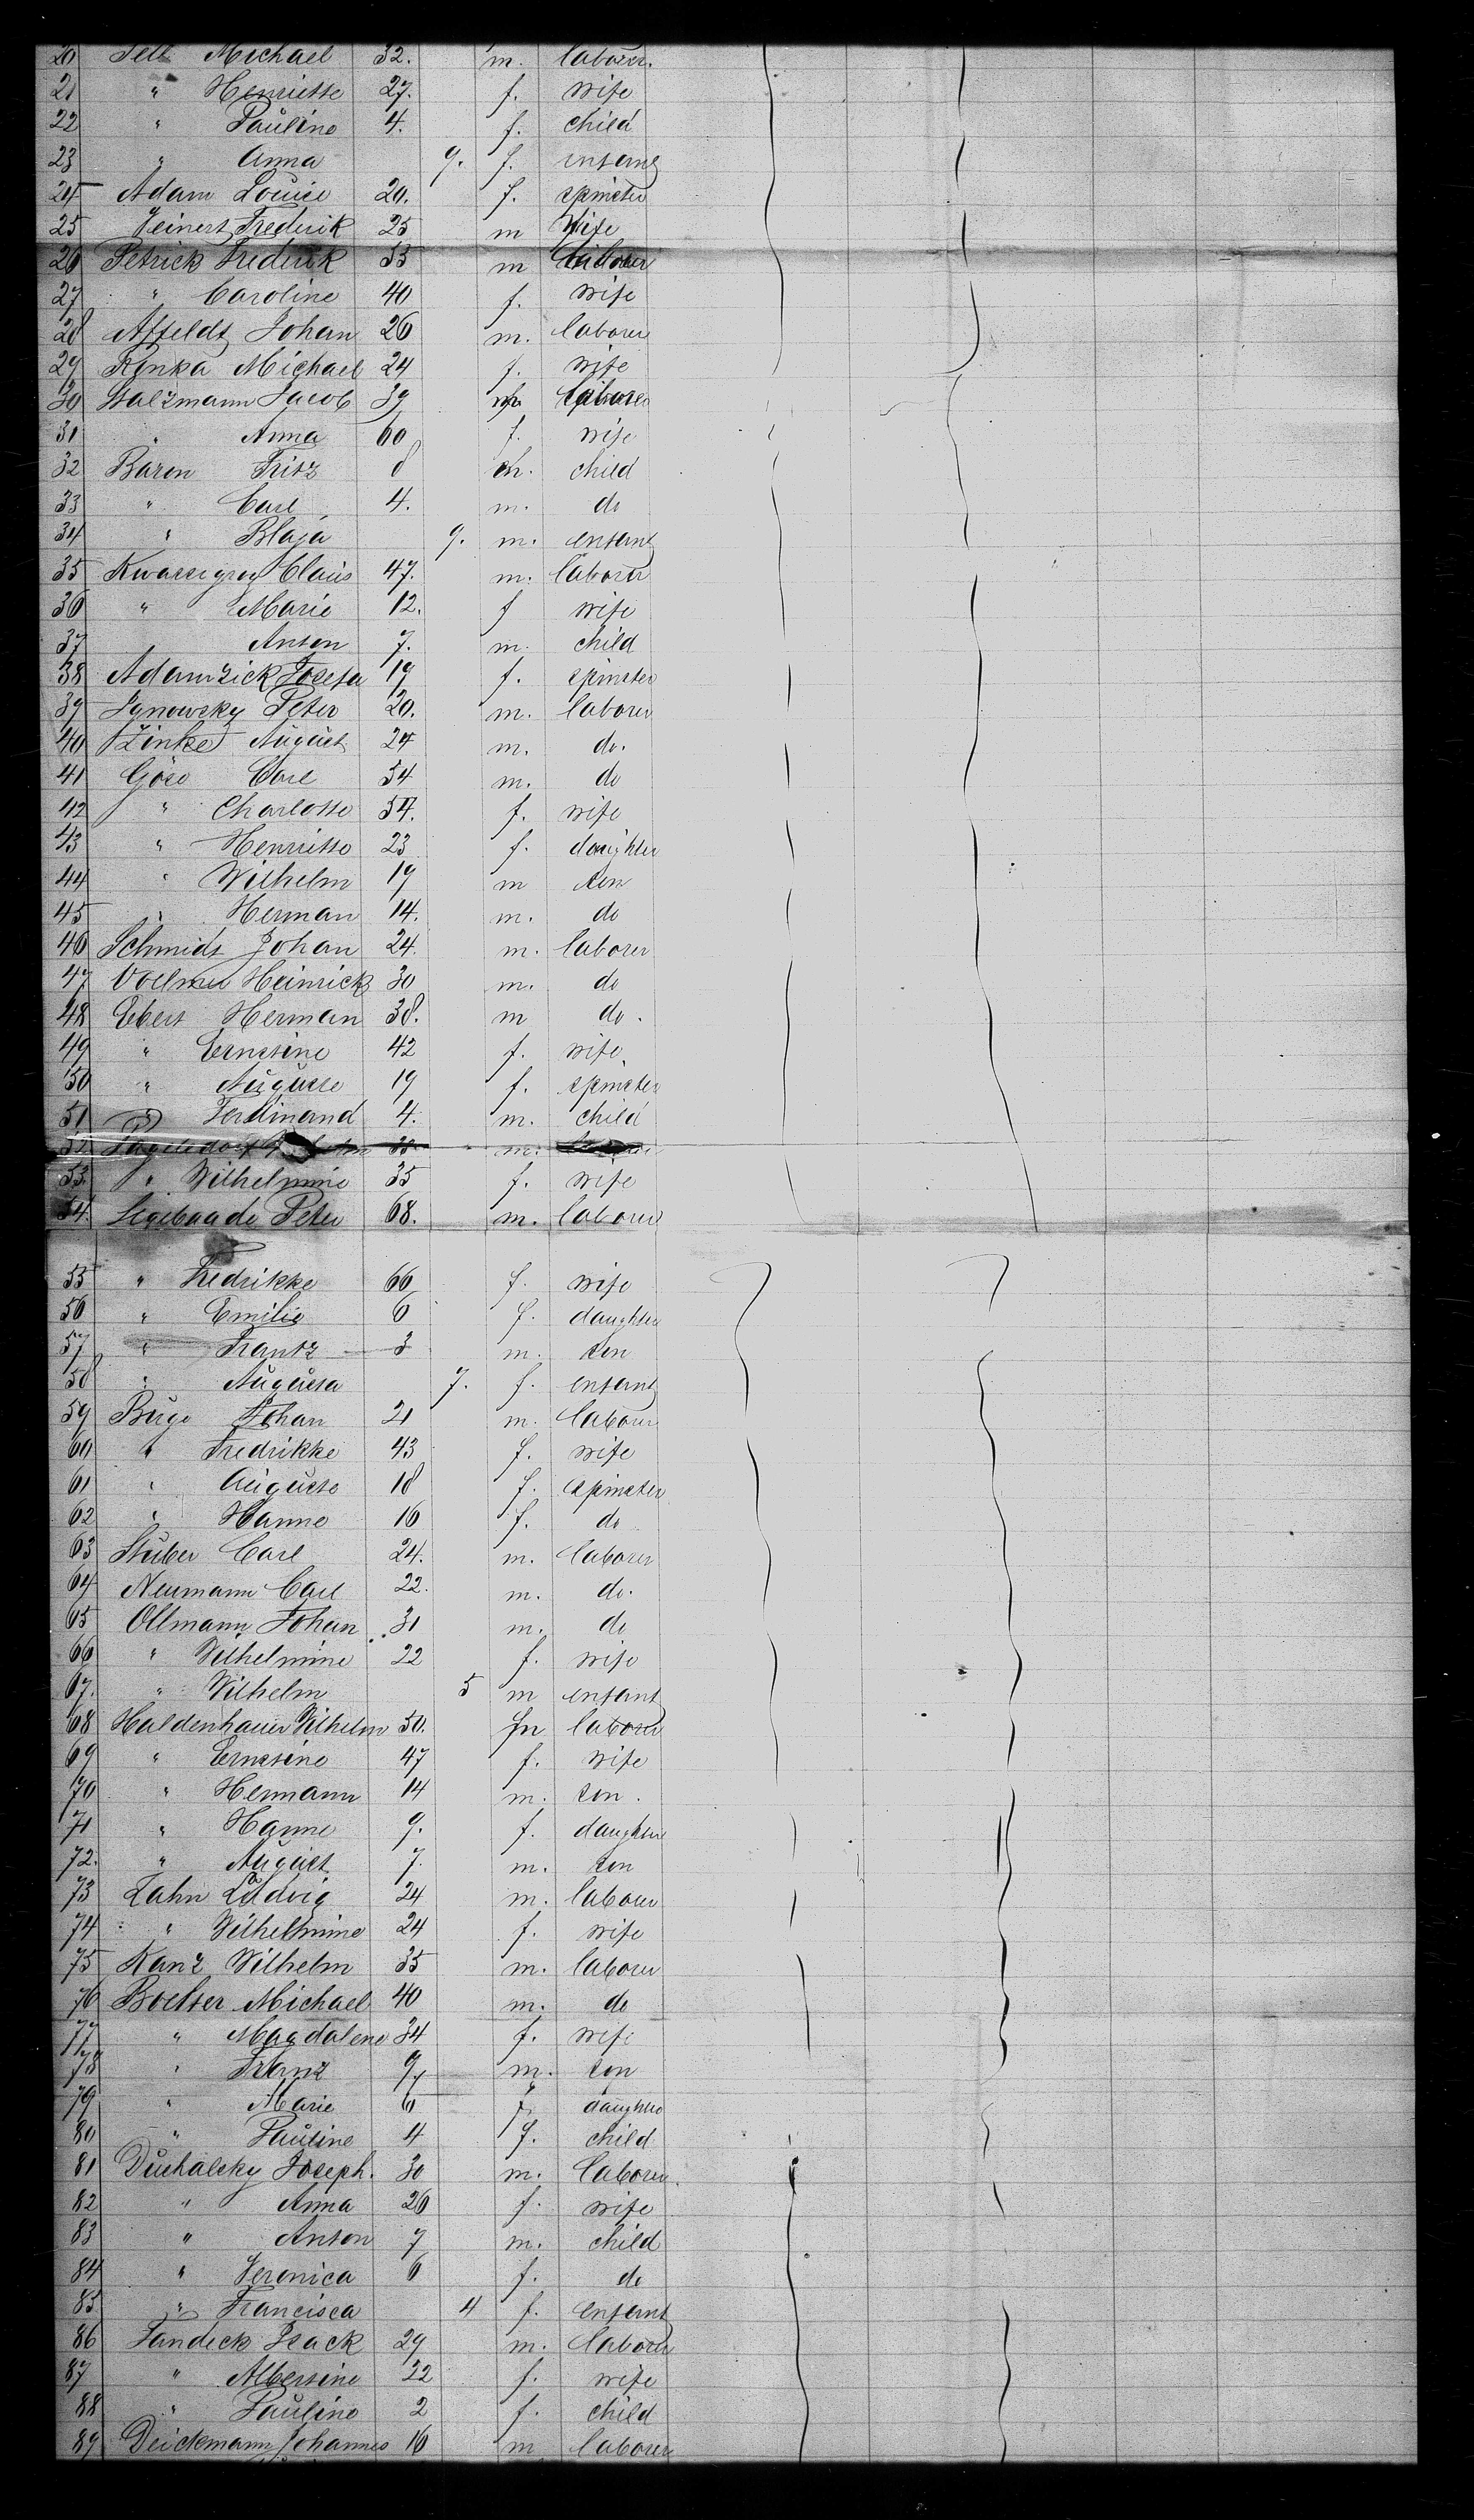 20 Tell Michael 32. m. laborer.
21 " Henriette 27. f. wife
22 " Pauline 4. f. child
23 " Anna 9. f. enfant
24 Adam Louise 20. f. spinster
25 Frederik 25 m Wife
26 Petrick Frederik 53 m laborer
27 " Caroline 40 f. wife
28 Affeldt Johan 26 m. laborer
29 Renka Michael 24 f. wife
30 Salzmann Jacob 39 m laborer
31 " Anna 60 f. wife
32 Baron Fritz 8 ch. child
33 " Carl 4. m. do
34 " 9. m. enfant
35 Claus 47. m. laborer
36 " Marie 12. f wife
37 Anton 7. m. child
38 Adamzick Josefa 19 f. spinster
39 Janowsky Peter 20. m. laborer
40 Zinke August 24 m. do.
41 Göse Carl 54 m. do
42 " Charlotte 54. f. wife
43 " Henriette 23 f. daughter
44 " Wilhelm 19 m son
45 " Herman 14. m. do
46 Schmidt Johan 24. m. laborer
47 Vollmer Heinrick 30 m. do
48 Ebert Herman 38. m do.
49 " Ernestine 42 f. wife
50 " Auguste 19 f. spinster
51 " Ferdinand 4. m. child
52 m.
53 " Wilhelmine 35 f. wife
54. Peter 68. m. laborer
55 " Fredrikke 66 f. wife
56 " Emilie 6 f. daughter
57 " Frantz 3 m. son
58 " Augusta 7. f. enfant
59 Buge Johan 21 m. laborer
60 " Fredrikke 43 f. wife
61 " Auguste 18 f. spinster
62 " Hanne 16 f. do
63 Stuber Carl 24. m. laborer
64 Neumann Carl 22. m. do.
65 Ollmann Johan 31 m. do
66 " Wilhelmine 22 f. wife
67. " Wilhelm 5 m enfant
68 Haldenhauer Wilhelm 50. m laborer
69 " Ernestine 47 f. wife
70 " Hermann 14 m. son.
71 " Hanne 9. f. daughter
72. " August 7. m. son
73 Zahn Ludvig 24 m. laborer
74 " Wilhelmine 24 f. wife
75 Kanz Wilhelm 35 m. laborer
76 Boelter Michael 40 m. do
77 " Magdalene 34 f. wife
78 " Franz 9 m. son
79 " Marie 6 f. daughter
80 " Pauline 4 f. child
81 Duchalsky Joseph. 30 m. laborer.
82 " Anna 26 f. wife
83 " Anton 7 m. child
84 " Veronica 6 f. do
85 " Francisca 4 f. enfant
86 Jandeck Isack 29 m. laborer
87 " Albertine 22 f. wife
88 " Pauline 2 f. child
89 Deickmann Johannes 16 m laborer